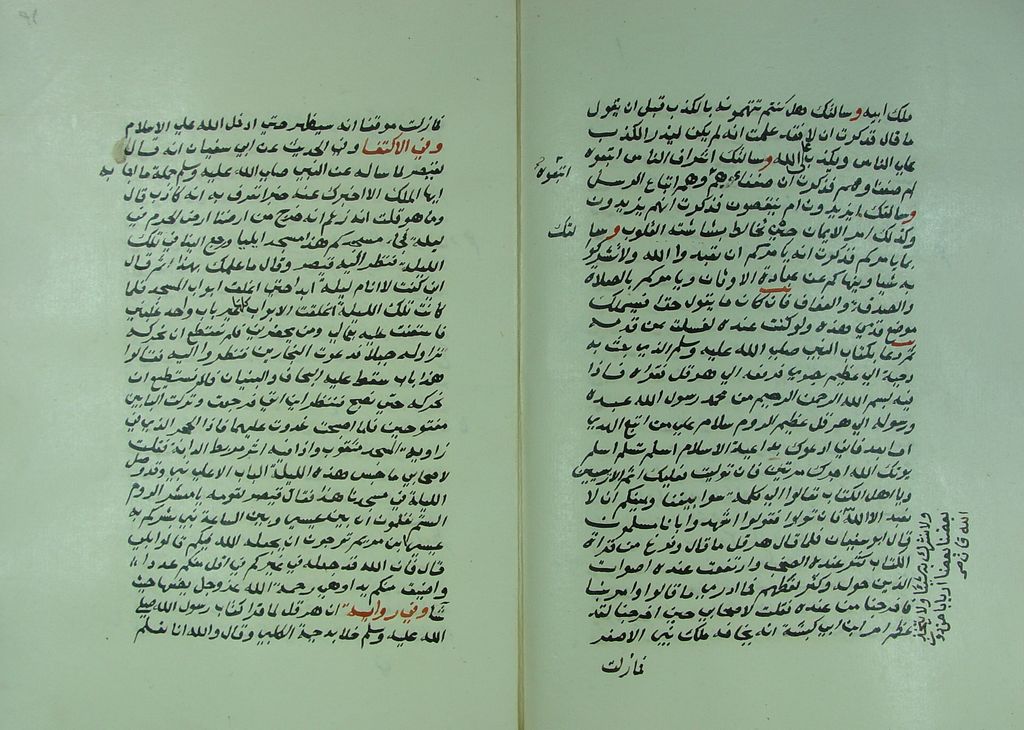 ملك ابيه وسالتك هل كنتم تتهمونه بالكذب قبل ان يقول
ما قال فذكرت ان لا فقد علمت انه لم يكن ليذر الكذب
على الناس ويكذب على الله وسالتك اشراف الناس اتبعوه
ام ضعفاوهم فذكرت ان ضعفاءهم وهم اتباع الرسل
اتبعوه
وسالتك ايزيدون ام ينقصون فذكرت انهم يزيدون
وكذلك امر الايمان حتى تخالط بشاشته القلوب وسا
لتك
بما يامركم فذكرت انه يامركم ان تعبدوا الله ولا تشركوا
به شيا وينهاكم عن عبادة الاوثان ويامركم بالصلاة
والصدقة والعفاف فان كان ما يقول حقا فسيملك
موضع قدمي هذه ولو كنت عنده لغسلت عن قدميه
ثم دعا بكتاب النبي صلى الله عليه وسلم الذي بعث به
دحية الى عظيم بصرى فدفعه الى هرقل فقراه فاذا
فيه بسم الله الرحمن الرحيم من محمد رسول الله عبده
ورسوله الى هرقل عظيم الروم سلام على من اتبع الهدى
اما بعد فاني ادعوك بداعية الاسلام اسلم تسلم اسلم
يوتك الله اجرك مرتين فان توليت فعليك اثم الاريسين
ويا اهل الكتاب تعالوا الى كلمة سوا بيننا وبينكم ان لا
نعبد الا الله فان تولوا فقولوا اشهدوا بانا مسلمون
ولا نشرك به شيئا ولا يتخذ
بعضنا بعضا اربابا من دون
الله فانه صح
قال ابو سفيان فلما قال هرقل ما قال وفرغ من قراة
الكتاب كثر عنده الصخب وارتفعت عنده اصوات
الذين حوله وكثر لغطهم فما ادري ما قالوا وامر بنا
فاخرجنا من عنده فقلت لاصحابي حين اخرجنا لقد
عظم امر ابن ابي كبشة انه يخافه ملك بني الاصفر
فمازلت
فمازلت موقنا انه سيظهر حتى ادخل الله علي الاسلام
وفي الاكتفا وفي الحديث عن ابي سفيان انه قال
لقيصر لما ساله عن النبي صلى الله عليه وسلم جملة ما اجابه به
ايها الملك الا اخبرك عنه خبرا تعرف به انه كاذب قال
وما هو قلت انه زعم انه خرج من ارضنا ارض الحرم في
ليلة فجاء مسجدكم هذا مسجد ايليا ورجع الينا في تلك
الليلة فنظر اليه قيصر وقال ما علمك بهذا قال
اني كنت لا انام ليلة ابدا حتى اغلق ابواب المسجد فلما
كانت تلك الليلة اغلقت الابواب كلها غير باب واحد غلبني
فاستعنت عليه بعمالي ومن يحضرني فلم نستطع ان نحركه
نزاوله جبلا فدعوت النجارين فنظروا اليه فقالوا
هذا باب سقط عليه النجاف والبنيان فلا نستطيع ان
نحركه حتى نصبح فننظر اين اتى فرجعت وتركت البابين
مفتوحين فلما اصبحت غدوت عليهما فاذا الحجر الذي في
زاوية المسجد مثقوب واذا فيه اثر مربط الدابة فقلت
لاصحابي ما حبس هذه الليلة الباب الا على نبي وقد صلى
الليلة في مسجدنا هذا فقال قيصر لقومه يا معشر الروم
الستم تعلمون ان بين عيسى وبين الساعة نبي بشركم به
عيسى ابن مريم ترجون ان يجعله الله فيكم قالوا بلى
قال فان الله قد جعله في غيركم في اقل منكم عددا
واضيق منكم بلدا وهي رحمة الله عز وجل يضعها حيث
شا وفي رواية ان هرقل لما قرا كتاب رسول الله صلى
الله عليه وسلم خلا بدحية الكلبي وقال والله انا نعلم